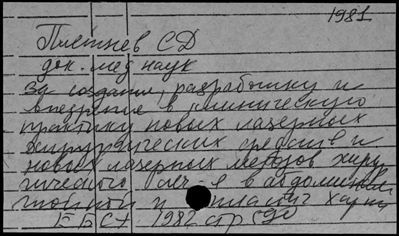 1981
Плетнев СД
док. мед наук
за создание, разработку и
внедрение в клиническую
практику новых лазерных
хирургических средств и
новых лазерных методов хиру
гического леч-я в абдоминал
гнойной и пластич хирур
ЕБСЭ 1982 стр